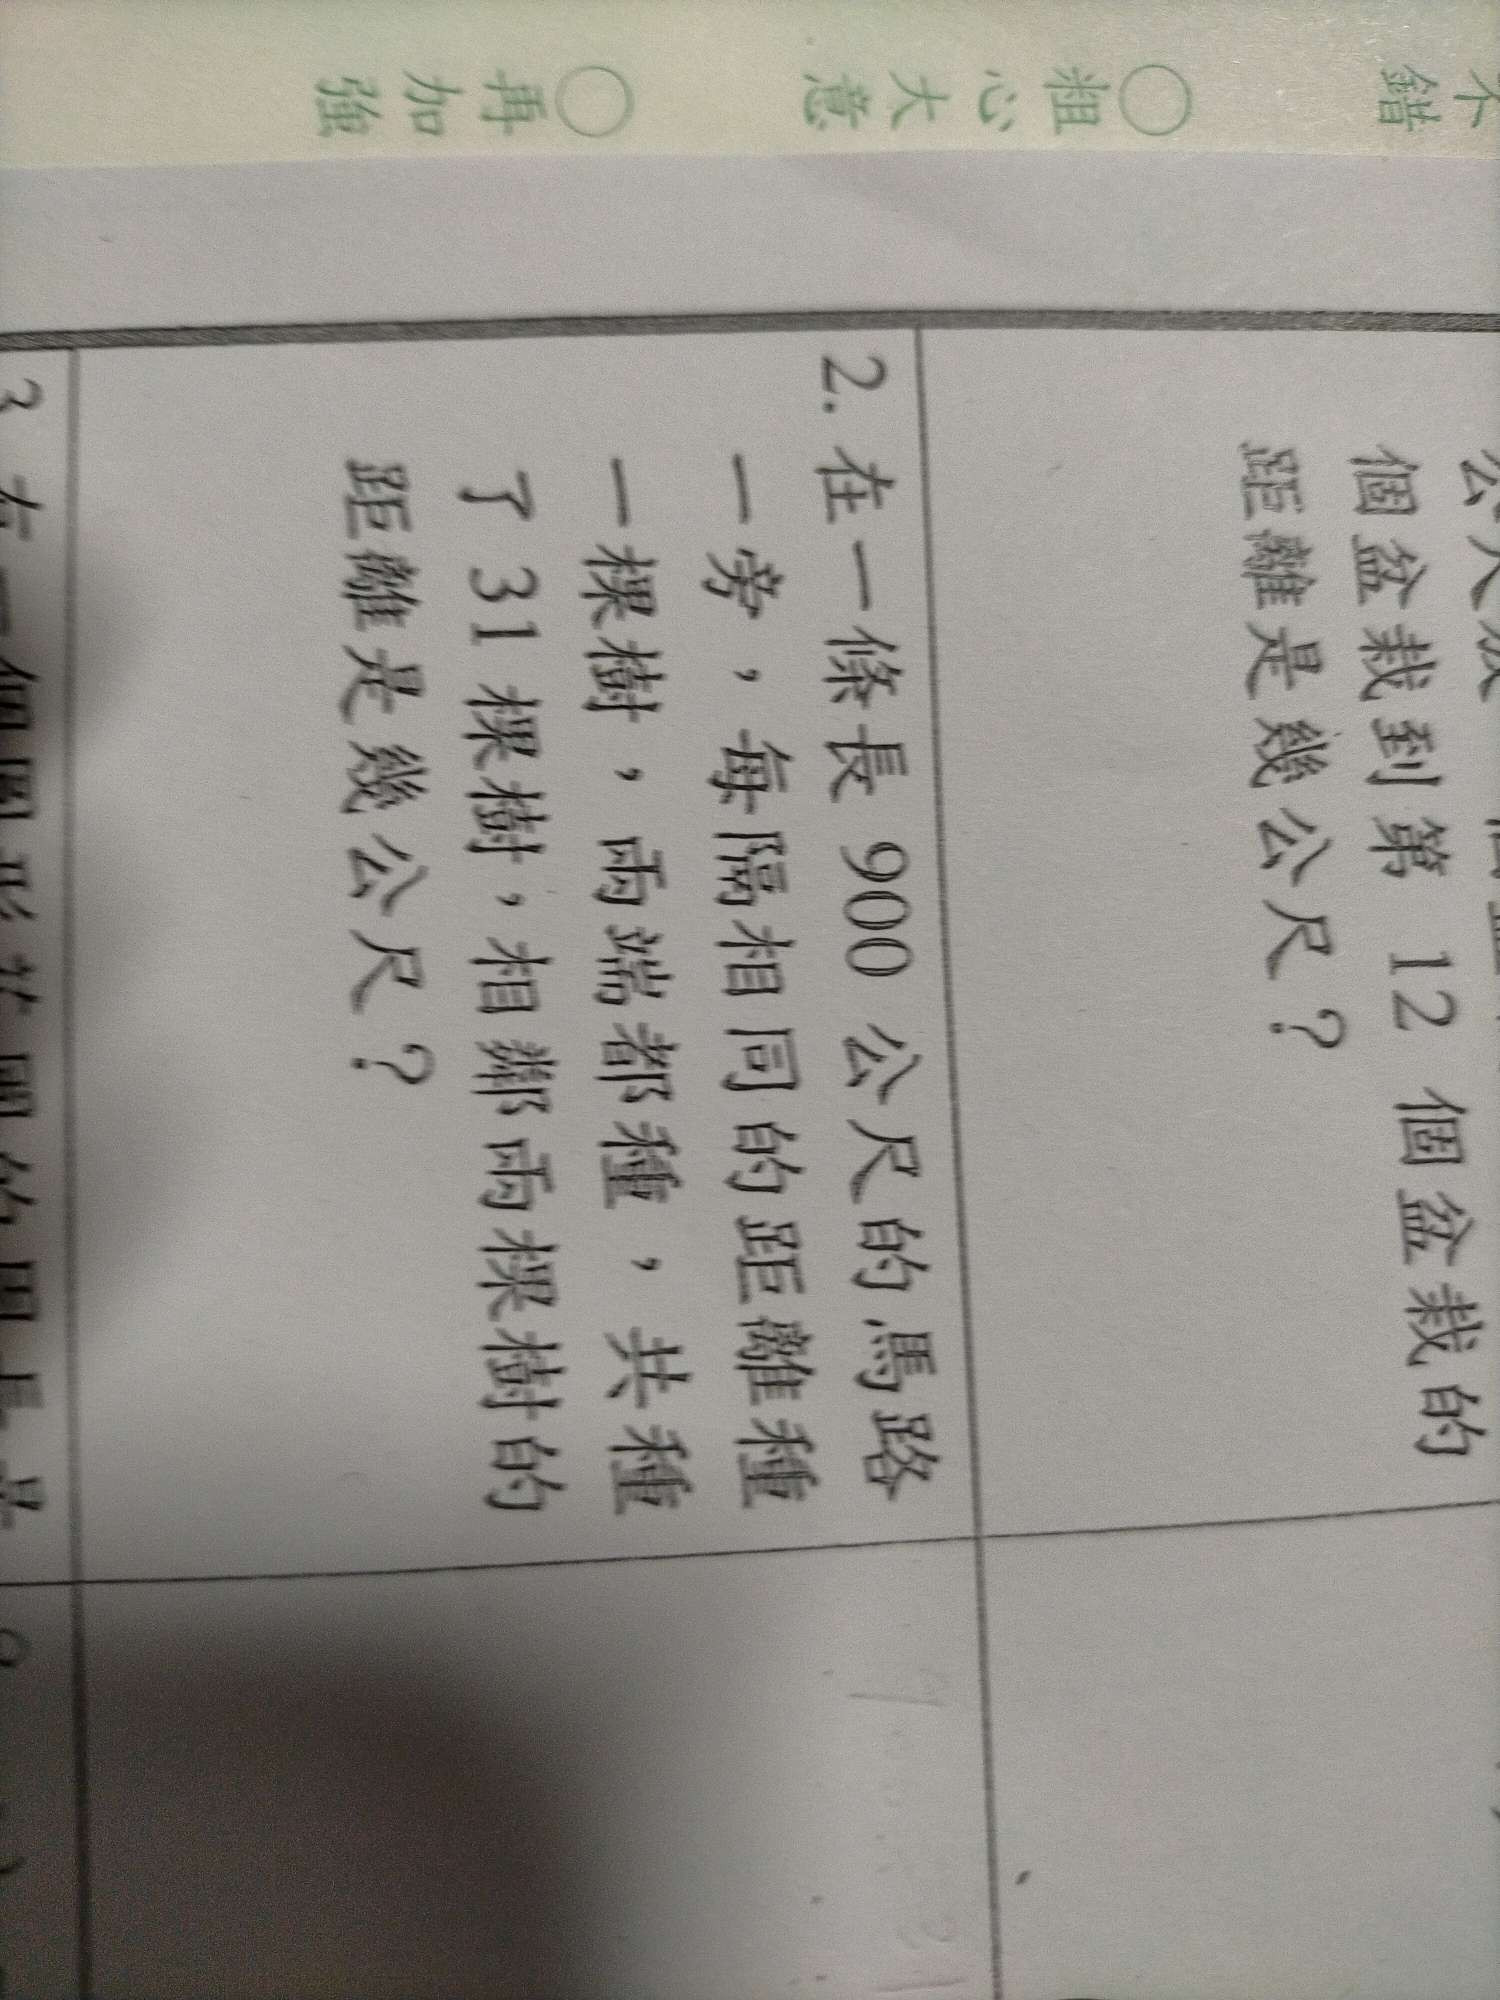 不錯
○粗心大意
○再加強
個盆栽到第 12 個盆栽的
距離是幾公尺？
2. 在一條長 900 公尺的馬路
一旁，每隔相同的距離種
一棵樹，兩端都種，共種
了 31 棵樹，相鄰兩棵樹的
距離是幾公尺？